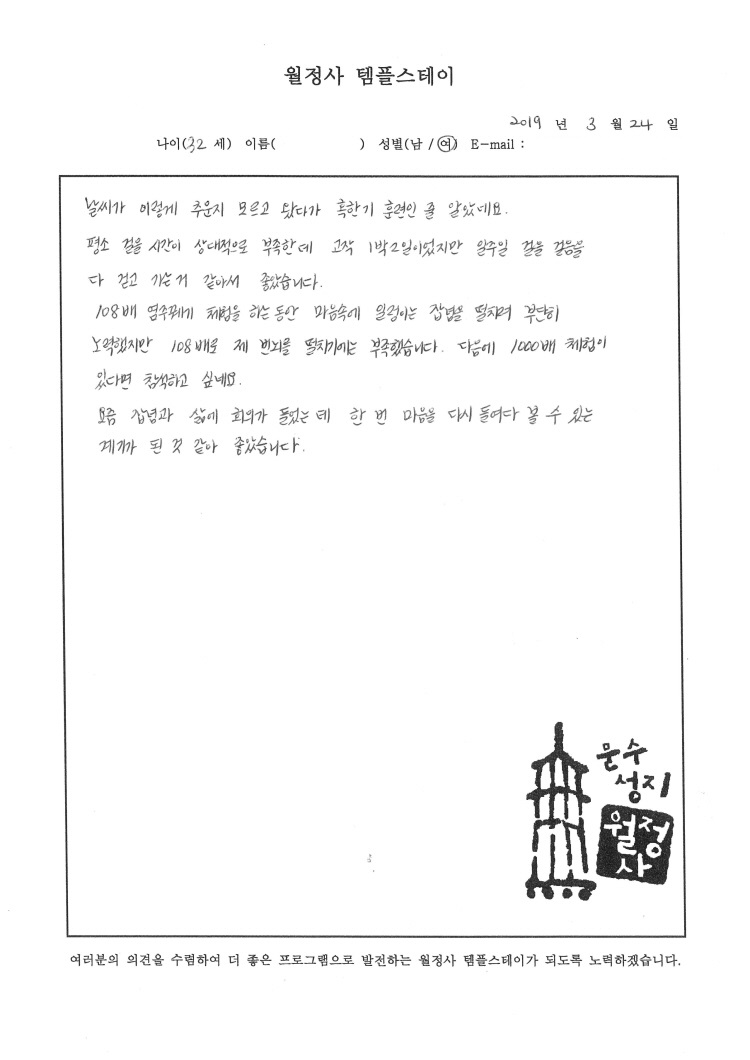 월정사 템플스테이
2019 년 3 월 24 일
나이(32 세) 이름( ) 성별(남 / 여) E-mail :
날씨가 이렇게 추운지 모르고 왔다가 혹한기 훈련인 줄 알았네요.
평소 걸을 시간이 상대적으로 부족한데 고작 1박2일이었지만 일주일 걸을 걸음을
다 걷고 가는거 같아서 좋았습니다.
108배 염주꿰기 체험을 하는동안 마음속에 일렁이는 잡념을 떨치려 부단히
노력했지만 108배로 제 번뇌를 떨치기에는 부족했습니다. 다음에 1000배 체험이
있다면 참석하고 싶네요.
요즘 잡념과 삶에 회의가 들었는데 한 번 마음을 다시 들여다 볼 수 있는
계기가 된 것 같아 좋았습니다.
문수
성지
월정
사
여러분의 의견을 수렴하여 더 좋은 프로그램으로 발전하는 월정사 템플스테이가 되도록 노력하겠습니다.